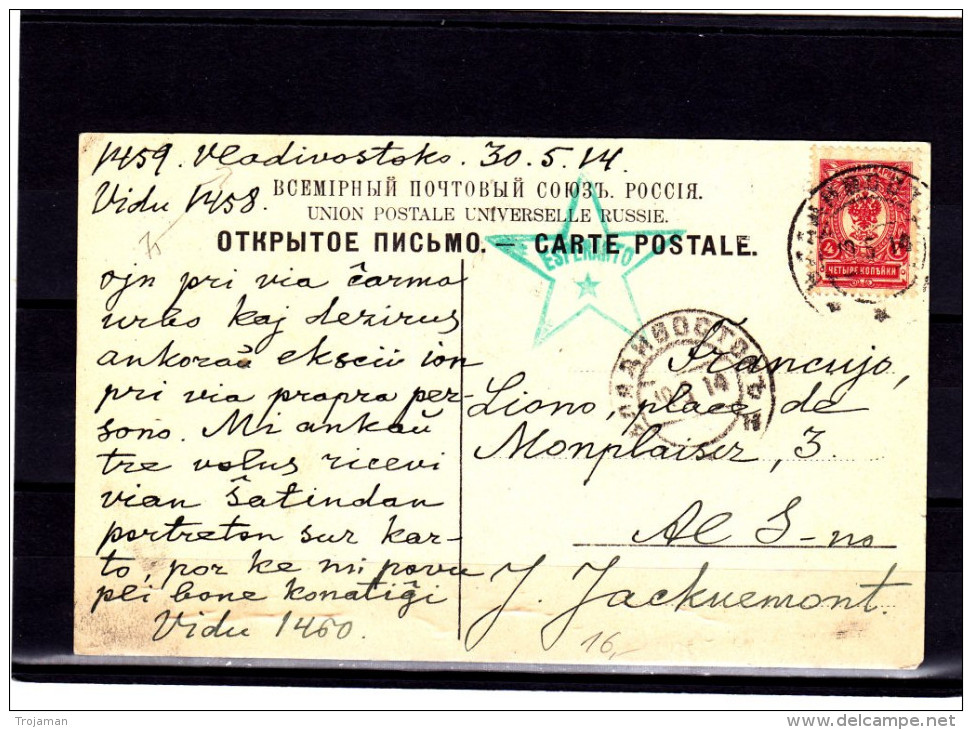 1459. Vladivostoko. 30.5.14.
Vidu 1458.
ВСЕМІРНЫЙ ПОЧТОВЫЙ СОЮЗЪ. РОССІЯ.
UNION POSTALE UNIVERSELLE RUSSIE.
ОТКРЫТОЕ ПИСЬМО. — CARTE POSTALE.
ESPERANTO
4
ЧЕТЫРЕ КОПѢЙКИ
ВЛАДИВОСТОКЪ
14
ojn pri via ĉarma
urbo kaj dezirus
ankoraŭ ekscii ion
pri via propra per-
sono. Mi ankaŭ
tre volus ricevi
vian ŝatindan
portreton sur kar-
to, por ke mi povu
pli bone konatiĝi
Vidu 1460.
Francujo,
Liono, place de
Monplaiser, 3.
Al S-no
J. Jackuemont.
16,-
Trojaman
www.delcampe.net